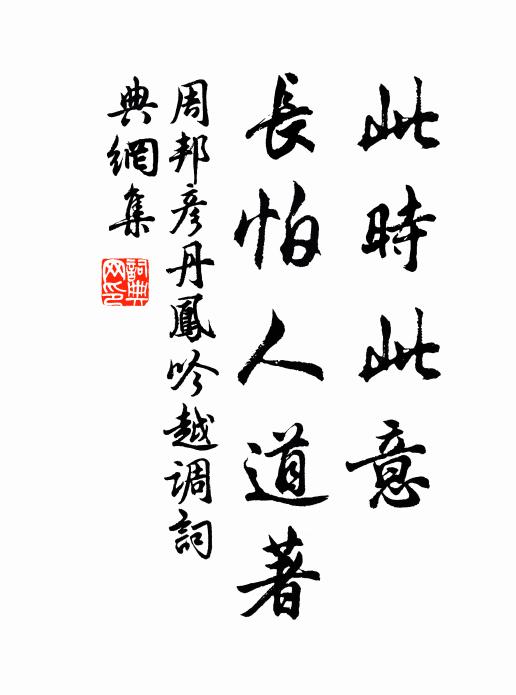 此時此意
長怕人道著
周邦彥丹鳳吟越调詞
典網集
詞典
网印